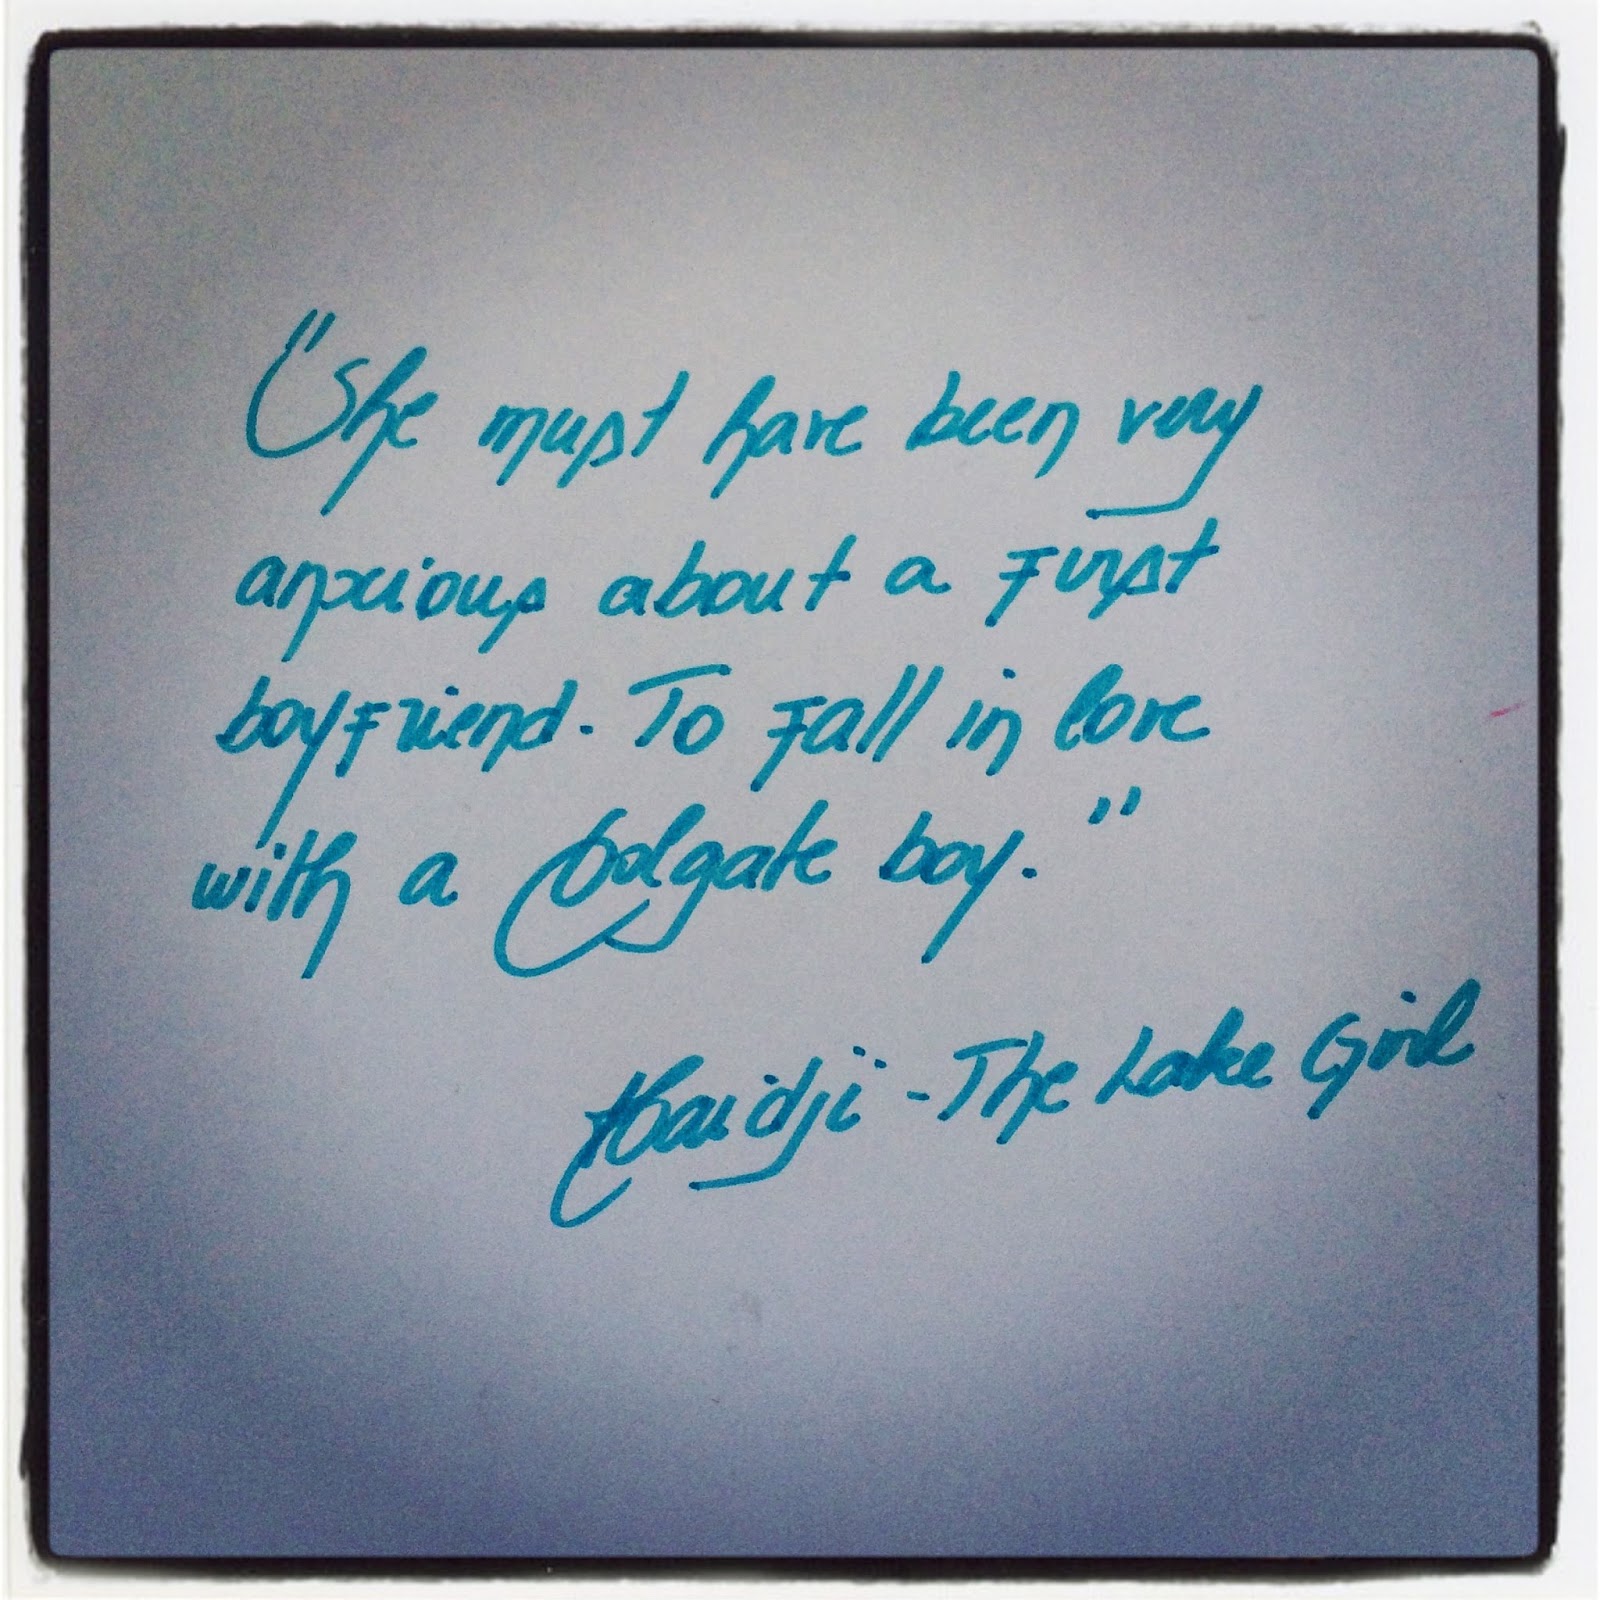 "She must have been very
anxious about a first
boyfriend. To fall in love
with a Colgate boy."
Haidji - The Lake Girl